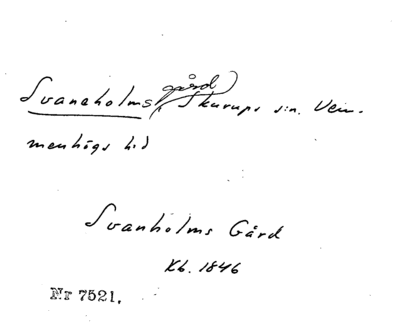 Svaneholms gård, Skurups s:n. Vem-
menhögs hd
Svanholms Gård
Kb. 1846
Nr 7521.